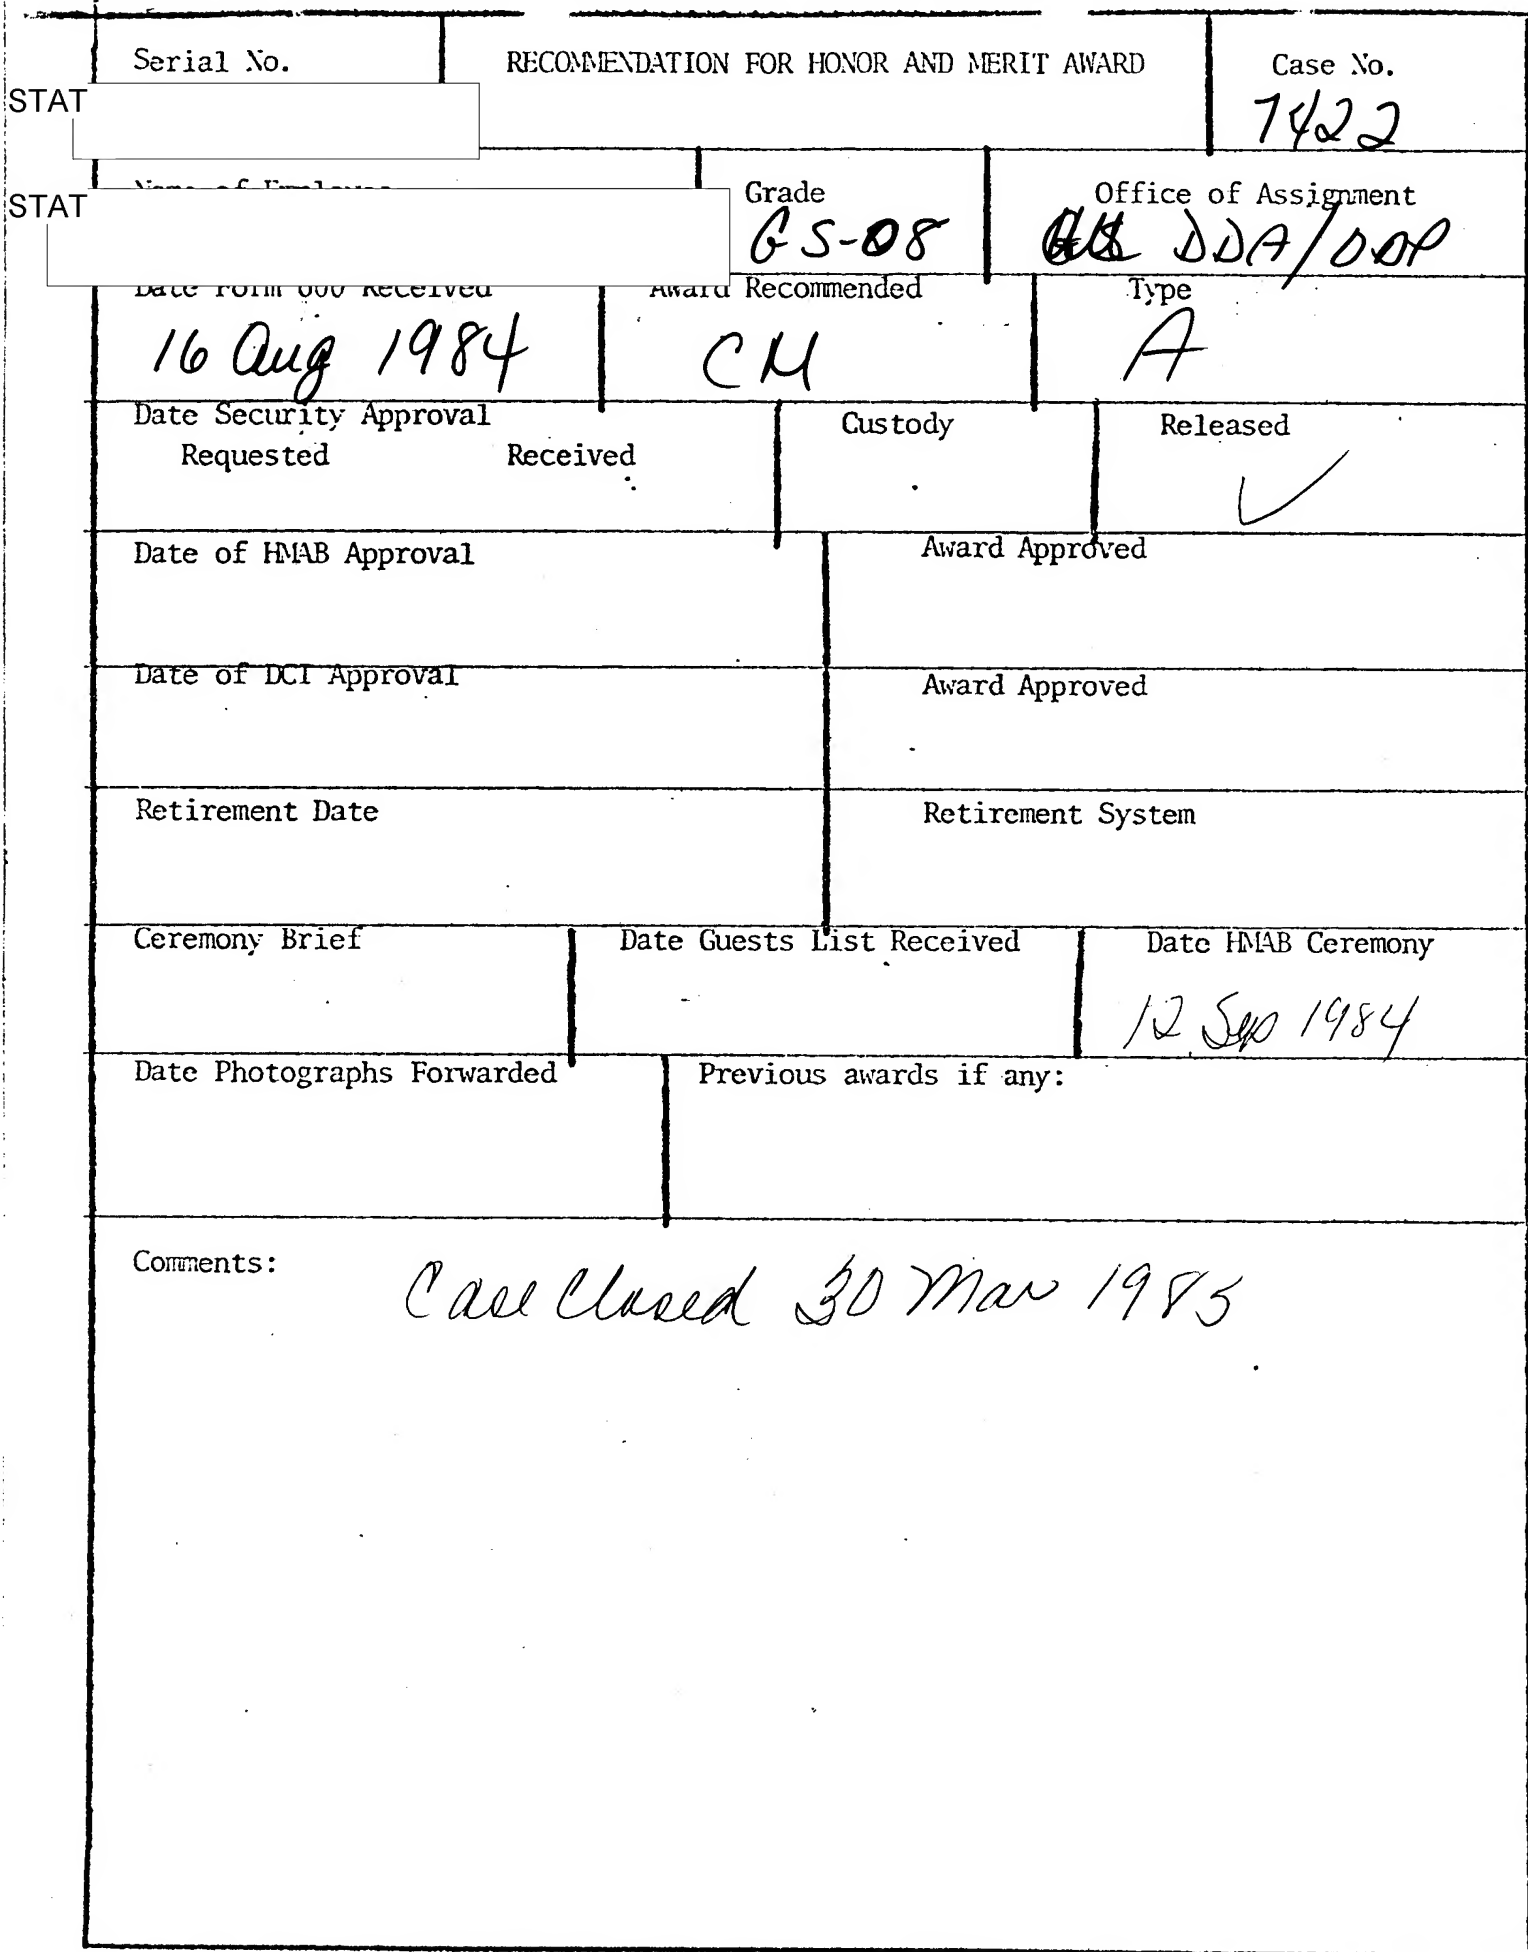 Serial No.
RECOMMENDATION FOR HONOR AND MERIT AWARD
Case No.
STAT
7422
Name of Employee
STAT
Grade
Office of Assignment
GS-08
DDA/ODP
Date Form 600 Received
Award Recommended
Type
16 Aug 1984
CM
A
Date Security Approval
Custody
Released
Requested Received
✓
Date of HMAB Approval
Award Approved
Date of DCI Approval
Award Approved
Retirement Date
Retirement System
Ceremony Brief
Date Guests List Received
Date HMAB Ceremony
12 Sep 1984
Date Photographs Forwarded
Previous awards if any:
Comments:
Case Closed 30 Mar 1985